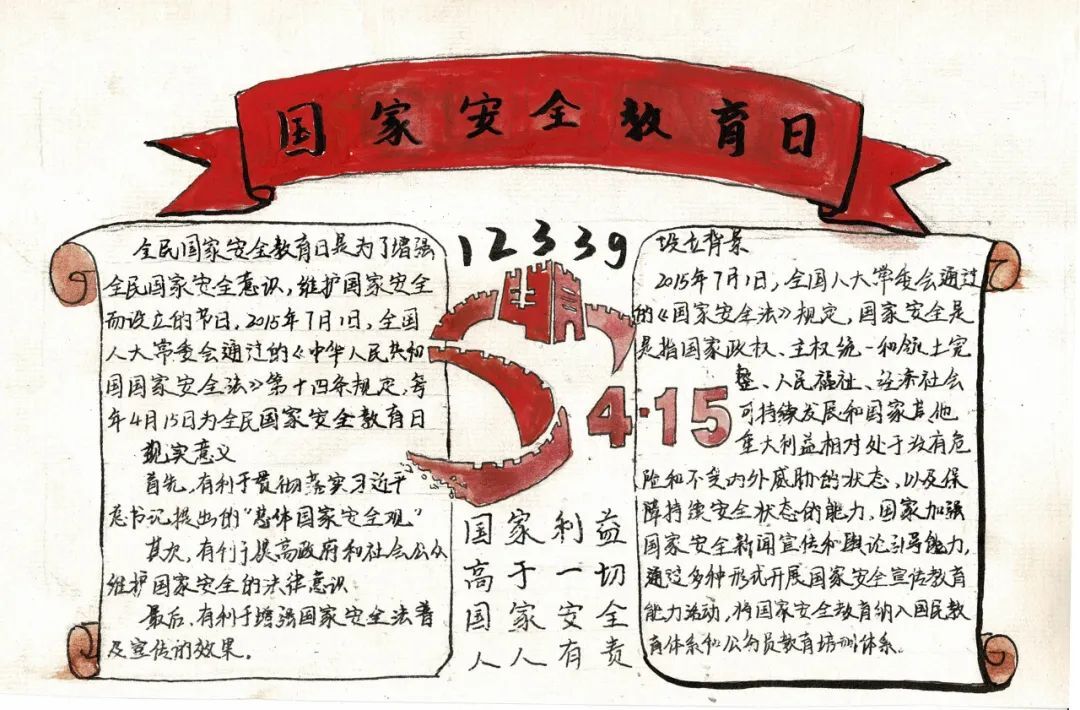 国家安全教育日
全民国家安全教育日是为了增强
全民国家安全意识，维护国家安全
而设立的节日，2015年7月1日，全国
人大常委会通过的《中华人民共和
国国家安全法》第十四条规定，每
年4月15日为全民国家安全教育日
现实意义
首先，有利于贯彻落实习近平
总书记提出的“总体国家安全观”
其次，有利于提高政府和社会公众
维护国家安全的法律意识
最后，有利于增强国家安全法普
及宣传的效果。
12339
4·15
国家利益
高于一切
国家安全
人人有责
设立背景
2015年7月1日，全国人大常委会通过
的《国家安全法》规定，国家安全是
是指国家政权、主权统一和领土完
整、人民福祉、经济社会
可持续发展和国家其他
重大利益相对处于没有危
险和不受内外威胁的状态，以及保
障持续安全状态的能力，国家加强
国家安全新闻宣传和舆论引导能力，
通过多种形式开展国家安全宣传教育
能力活动，将国家安全教育纳入国民教
育体系和公务员教育培训体系。